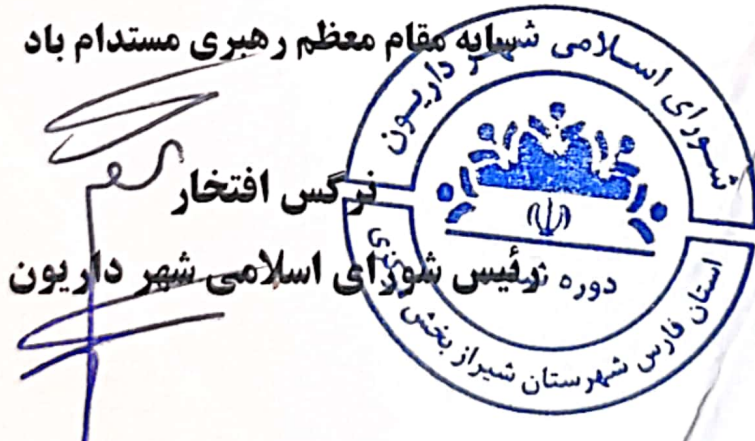 سایه مقام معظم رهبری مستدام باد
نرگس افتخار
رئیس شورای اسلامی شهر داریون
شورای اسلامی شهر داریون
دوره
استان فارس شهرستان شیراز بخش